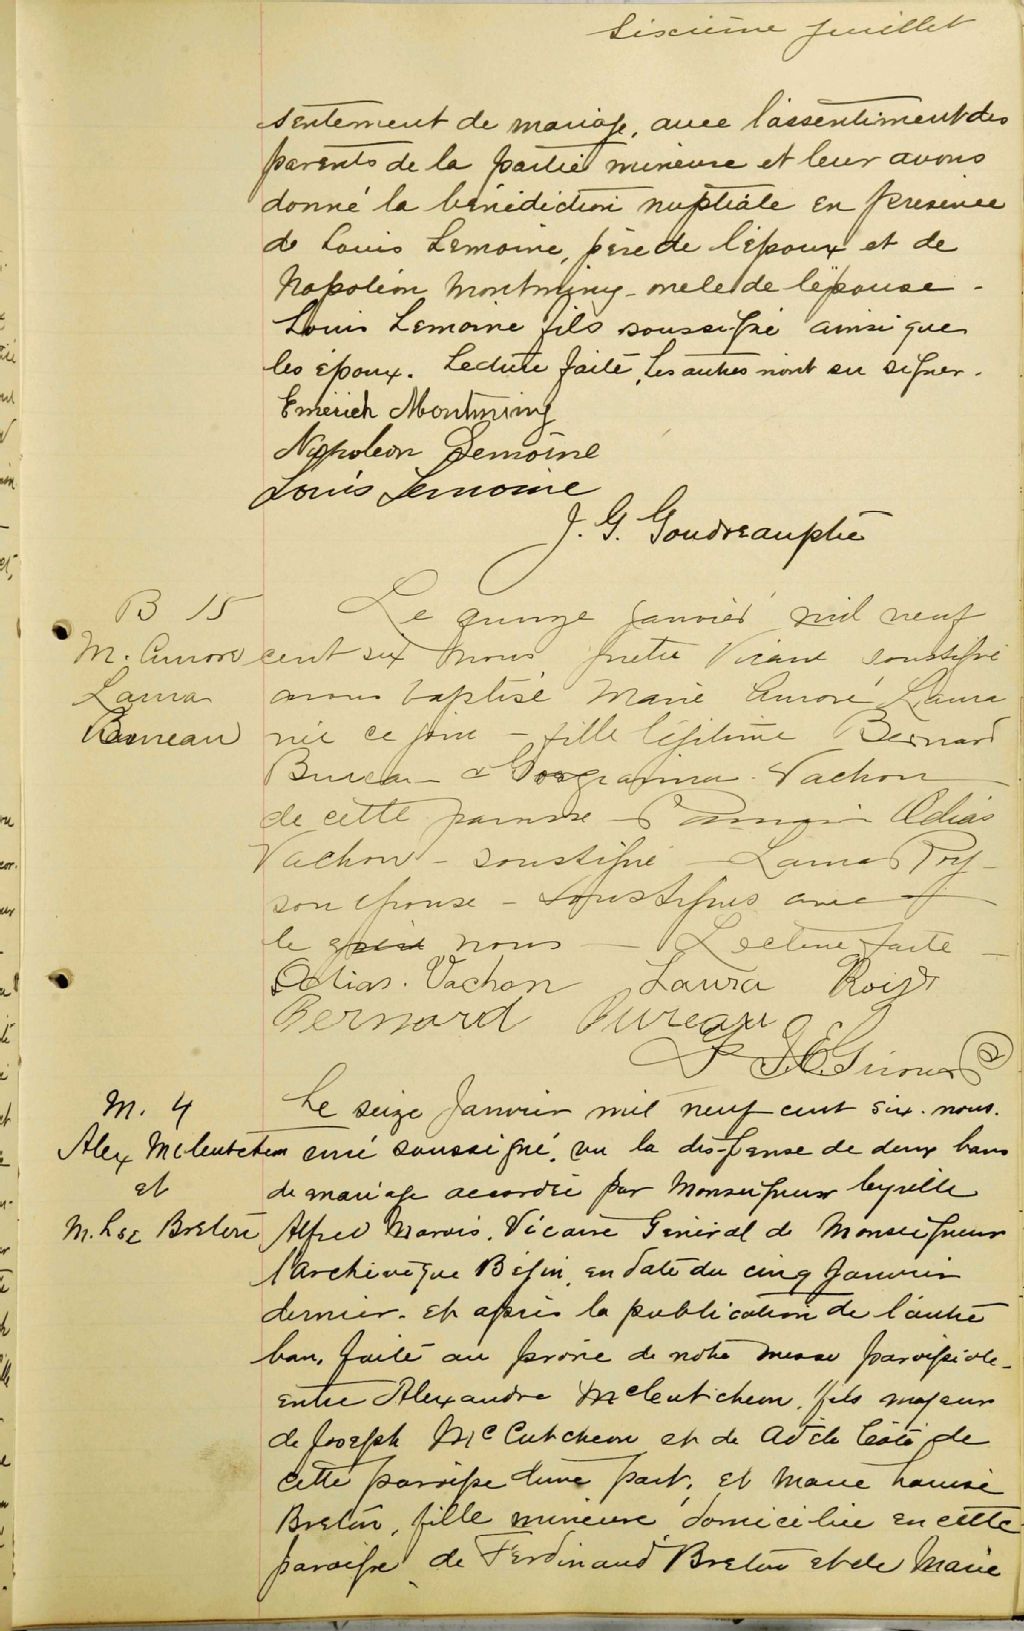 Sixième feuillet
sentement de mariage, avec l'assentiment des
parents de la partie mineure et leur avons
donné la bénédiction nuptiale en présence
de Louis Lemoine, père de l'époux et de
Napoléon Montminy oncle de l'épouse -
Louis Lemoine fils soussigné ainsi que
les époux. Lecture faite, Les autres n'ont su signer.
Emerich Montminy
Napoleon Lemoine
Louis Lemoine
J. G. Goudreau ptre
B 15
M. Aurore
Laura
Bureau
Le quinze janvier mil neuf
cent six nous prêtre Vicaire soussigné
avons baptisé Marie Aurore Laura
née ce jour - fille légitime Bernard
Bureau - & Georgianna Vachon
de cette paroisse - Parrain Odias
Vachon - soussigné - Laura Roy -
son épouse - soussignés avec
le père nous - Lecture faite -
Odias Vachon Laura Roy
Bernard Bureau
J. E. Girouard
M. 4
Alex McCutcheon
et
M. Lse Breton
Le seize Janvier mil neuf cent six. nous.
curé soussigné, vu la dispense de deux bans
de mariage accordée par Monseigneur Cyrille
Alfred Marois, Vicaire Général de Monseigneur
l'Archevêque Bégin, en date du cinq Janvier
dernier. et après la publication de l'autre
ban, faite au prône de notre messe paroissiale
entre Alexandre McCutcheon, fils majeur
de Joseph McCutcheon et de Adèle Côté de
cette paroisse d'une part, et Marie Louise
Breton, fille mineure, domiciliée en cette
paroisse, de Ferdinand Breton et de Marie